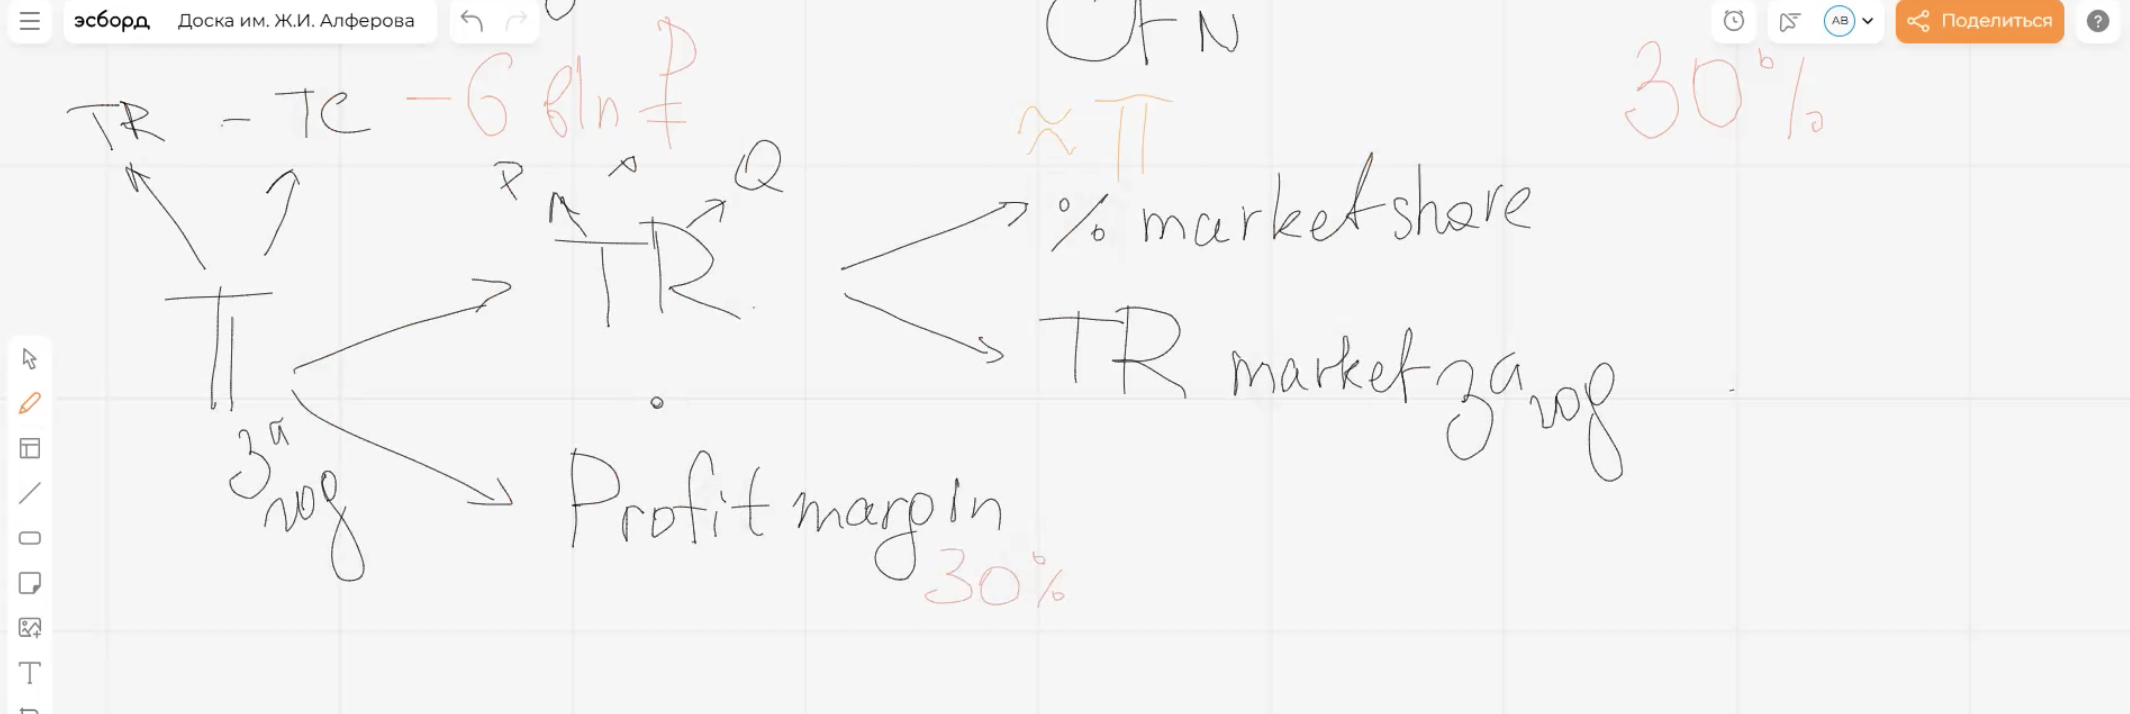 эсборд Доска им. Ж.И. Алферова
АВ
Поделиться
?
CFN
30%
TR - TC
-6 bln ₽
≈ π
P × Q
% market share
π
TR
TR market за год
за год
Profit margin
30%
T